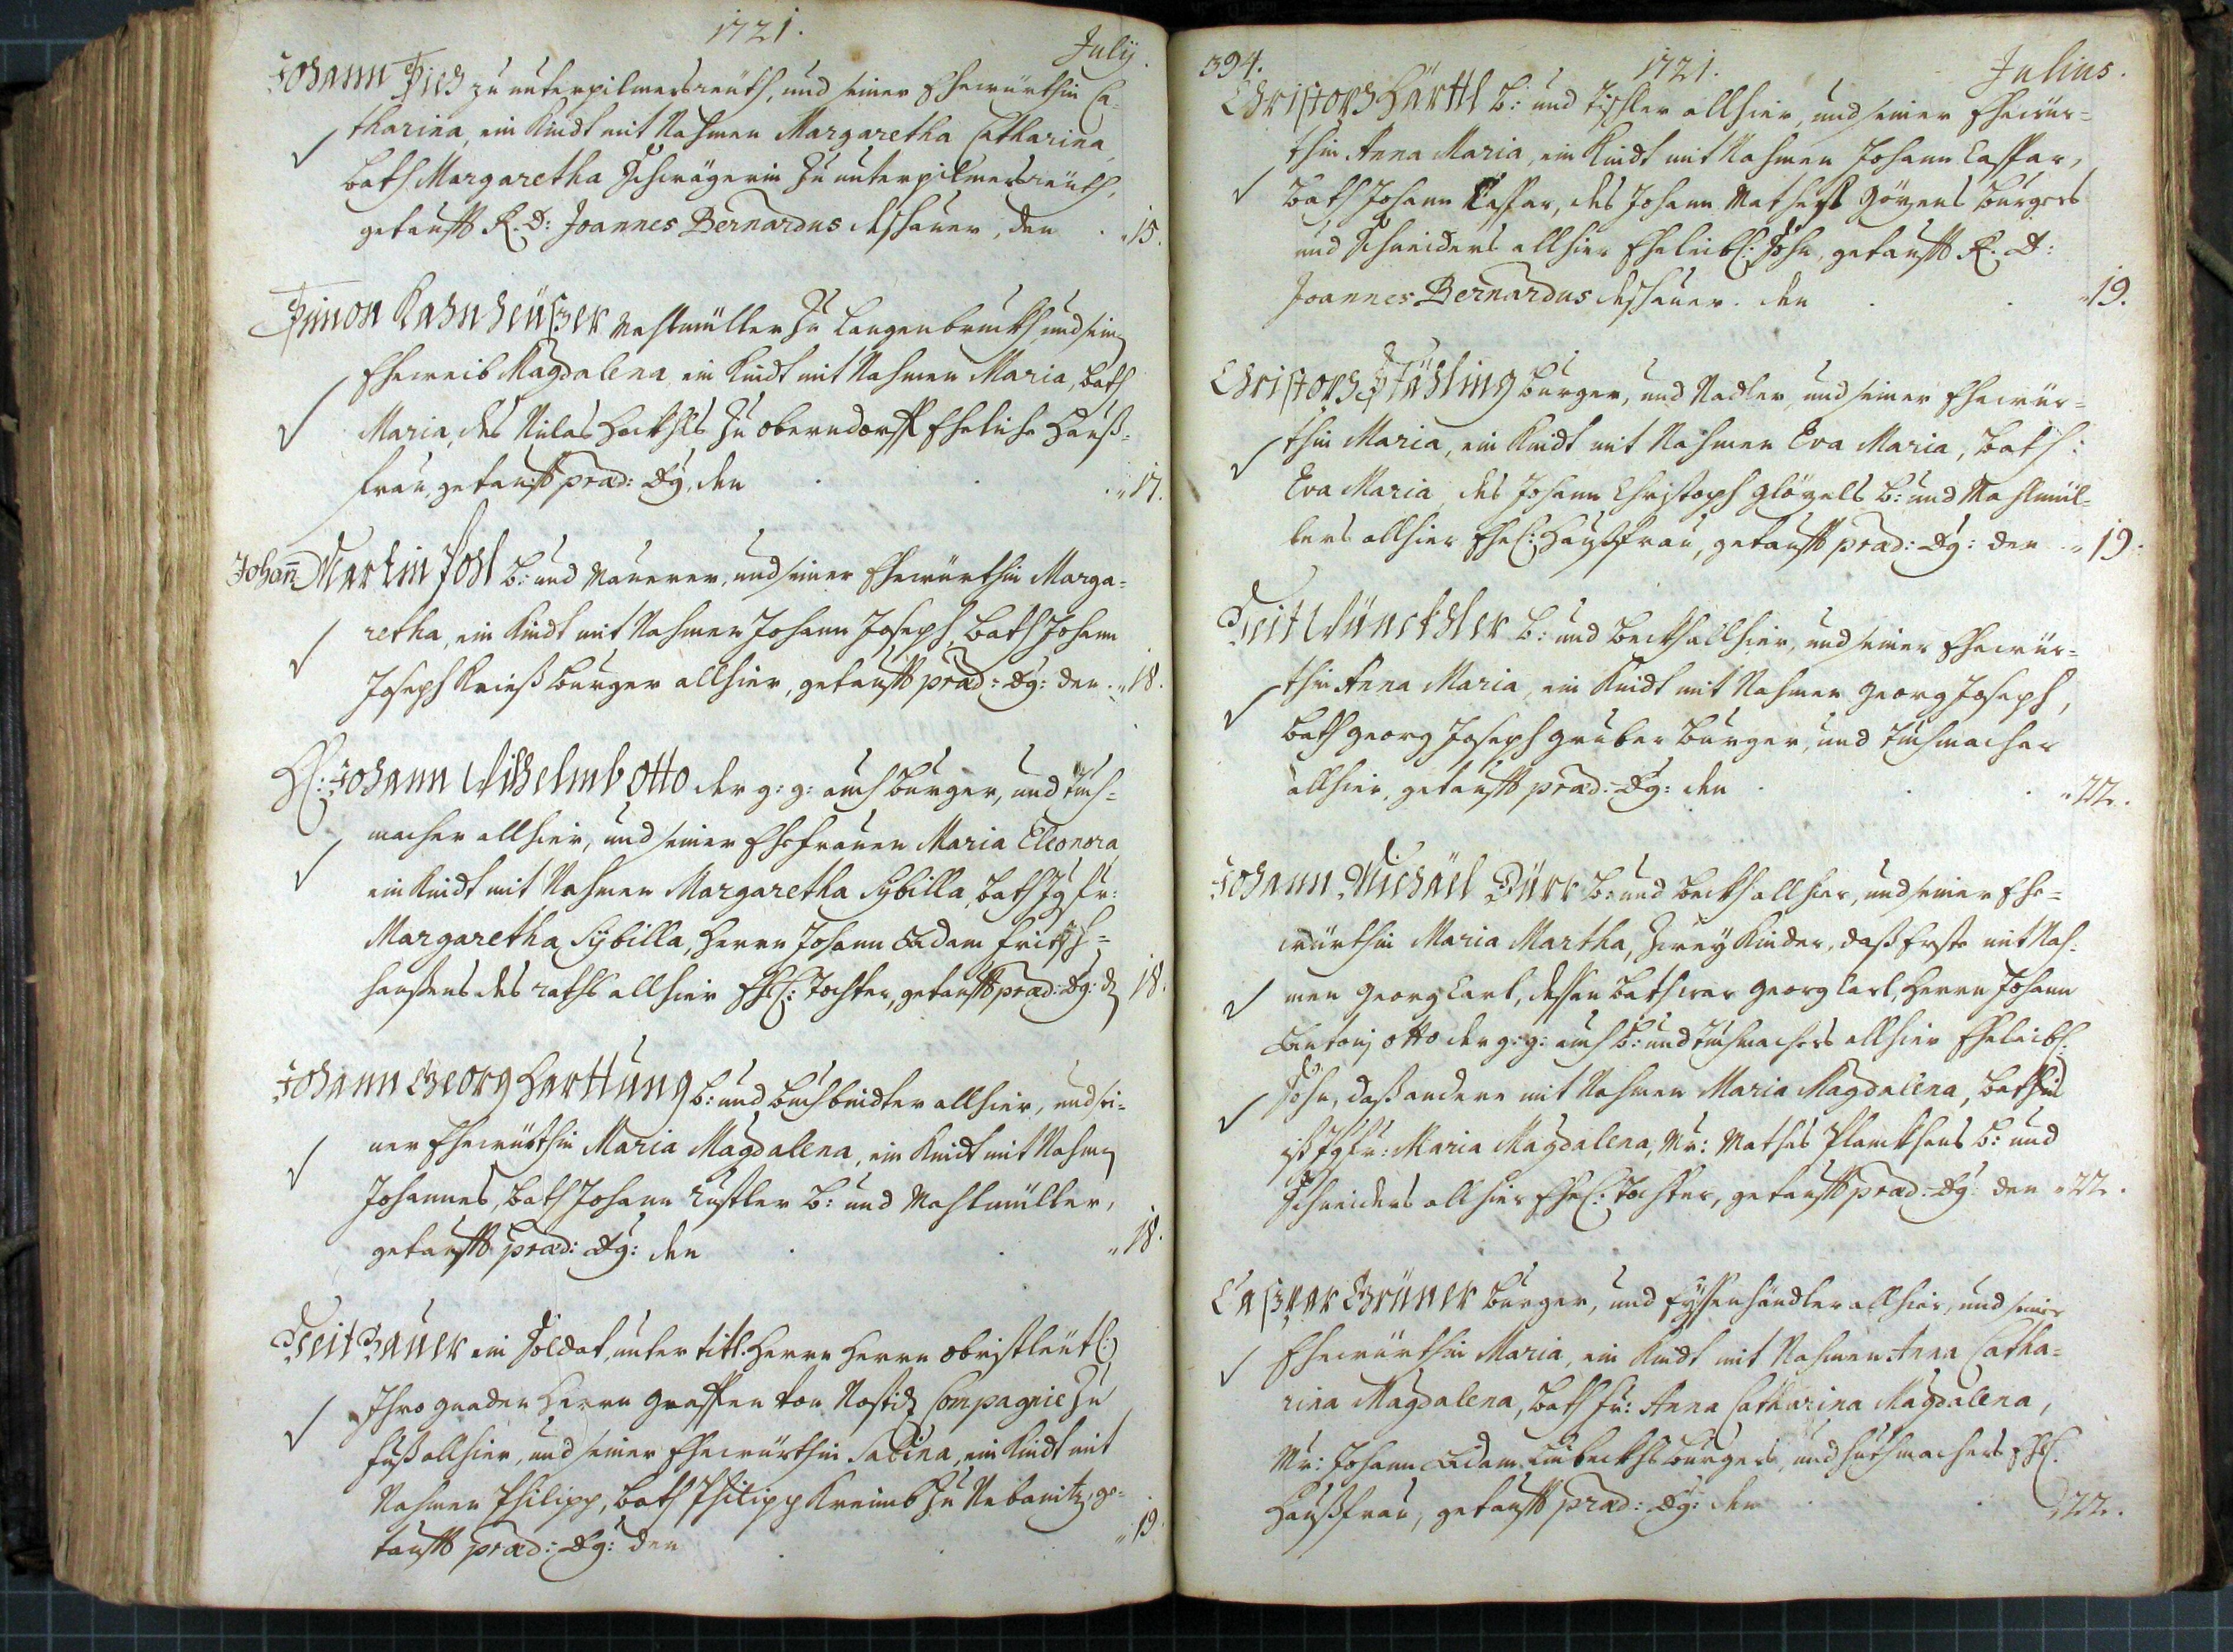 1721.
July.
Johann Pich zu unterpilmersreuth, und seiner Ehewürthin Ca-
tharina, ein Kindt mit Nahmen Margaretha Catharina,
bath Margaretha Schwägerin zu unterpilmersreuth,
getaufft R. D: Joannes Bernardus dessauer, den . 15.
Simon Kahnheußer Mahlmüller zu Langenbruckh und sein
Eheweib Magdalena, ein Kindt mit Nahmen Maria, bath
Maria, des Niclas zu oberndorff Eheliche Hauß-
frau, getaufft præd: Dg. den . . . 17.
Johan Martin Jost b: und Maurer, und seiner Ehewürthin Marga-
retha, ein Kindt mit Nahmen Johann Joseph, bath Johann
Joseph burger allhier, getaufft præd: Dg: den . 18.
H: Johann Wilhelmb Otto der g: g: auch burger, und tuch-
macher allhier, und seiner Ehefrauen Maria Eleonora
ein Kindt mit Nahmen Margaretha Sybilla, bath Jgfr:
Margaretha Sybilla, Herrn Johann Adam
des raths allhier Ehel: tochter, getaufft præd: Dg: d 18.
Johann Georg Harttung b: und buchbindter allhier, und sei-
ner Ehewürthin Maria Magdalena, ein Kindt mit Nahmen
Johannes, bath Johann b: und Mahlmüller,
getaufft præd: Dg: den . . 18.
Veit Bauer ein Soldat, unter titl: Herrn Herrn obristleüt:
Ihro gnaden Herrn Graffen von Nostiz Compagnie zu
fuß allhier, und seiner Ehewürthin Sabina, ein Kindt mit
Nahmen Philipp, bath Philipp zu Nebanitz, ge-
taufft præd: Dg: den . . 19.
394.
1721.
Julius.
Christoph Härttl b: und tischler allhier, und seiner Ehewür-
thin Anna Maria, ein Kindt mit Nahmen Johann Casspar,
bath Johann Casspar, des Johann Mathes burgers
und Schneiders allhier Eheleibl: Sohn, getaufft R. D:
Joannes Bernardus dessauer. den . . 19.
Christoph Stähling burger, und Nadler, und seiner Ehewür-
thin Maria, ein Kindt mit Nahmen Eva Maria, bath:
Eva Maria, des Johann Christoph b: und Mahlmül-
lers allhier Ehel: Haußfrau, getaufft præd: Dg: den . 19.
Veit Wünschler b: und beckh allhier, und seiner Ehewür-
thin Anna Maria, ein Kindt mit Nahmen Georg Joseph,
bath Georg Joseph Gruber burger, und tuchmacher
allhier, getaufft præd: Dg: den . . 22.
Johann Michäel Dürr b: und beckh allhier, und seiner Ehe-
würthin Maria Martha, zwey Kinder, daß Erste mit Nah-
men Georg Carl, dessen bath war Georg Carl, Herrn Johann
Antonj Otto der g: g: auch b: und tuchmachers allhier Eheleibl:
Sohn, daß andere mit Nahmen Maria Magdalena, bathin
ist Jgfr: Maria Magdalena, Mr: Mathes b: und
Schneiders allhier Ehel: tochter, getaufft præd: Dg: den 22.
Caspar Grüner burger, und Eyssenhändler allhier, und seiner
Ehewürthin Maria, ein Kindt mit Nahmen Anna Catha-
rina Magdalena, bath Fr: Anna Catharina Magdalena,
Mr: Johann Adam burgers, und huthmachers Ehel:
Haußfrau, getaufft præd: Dg: den . . 22.